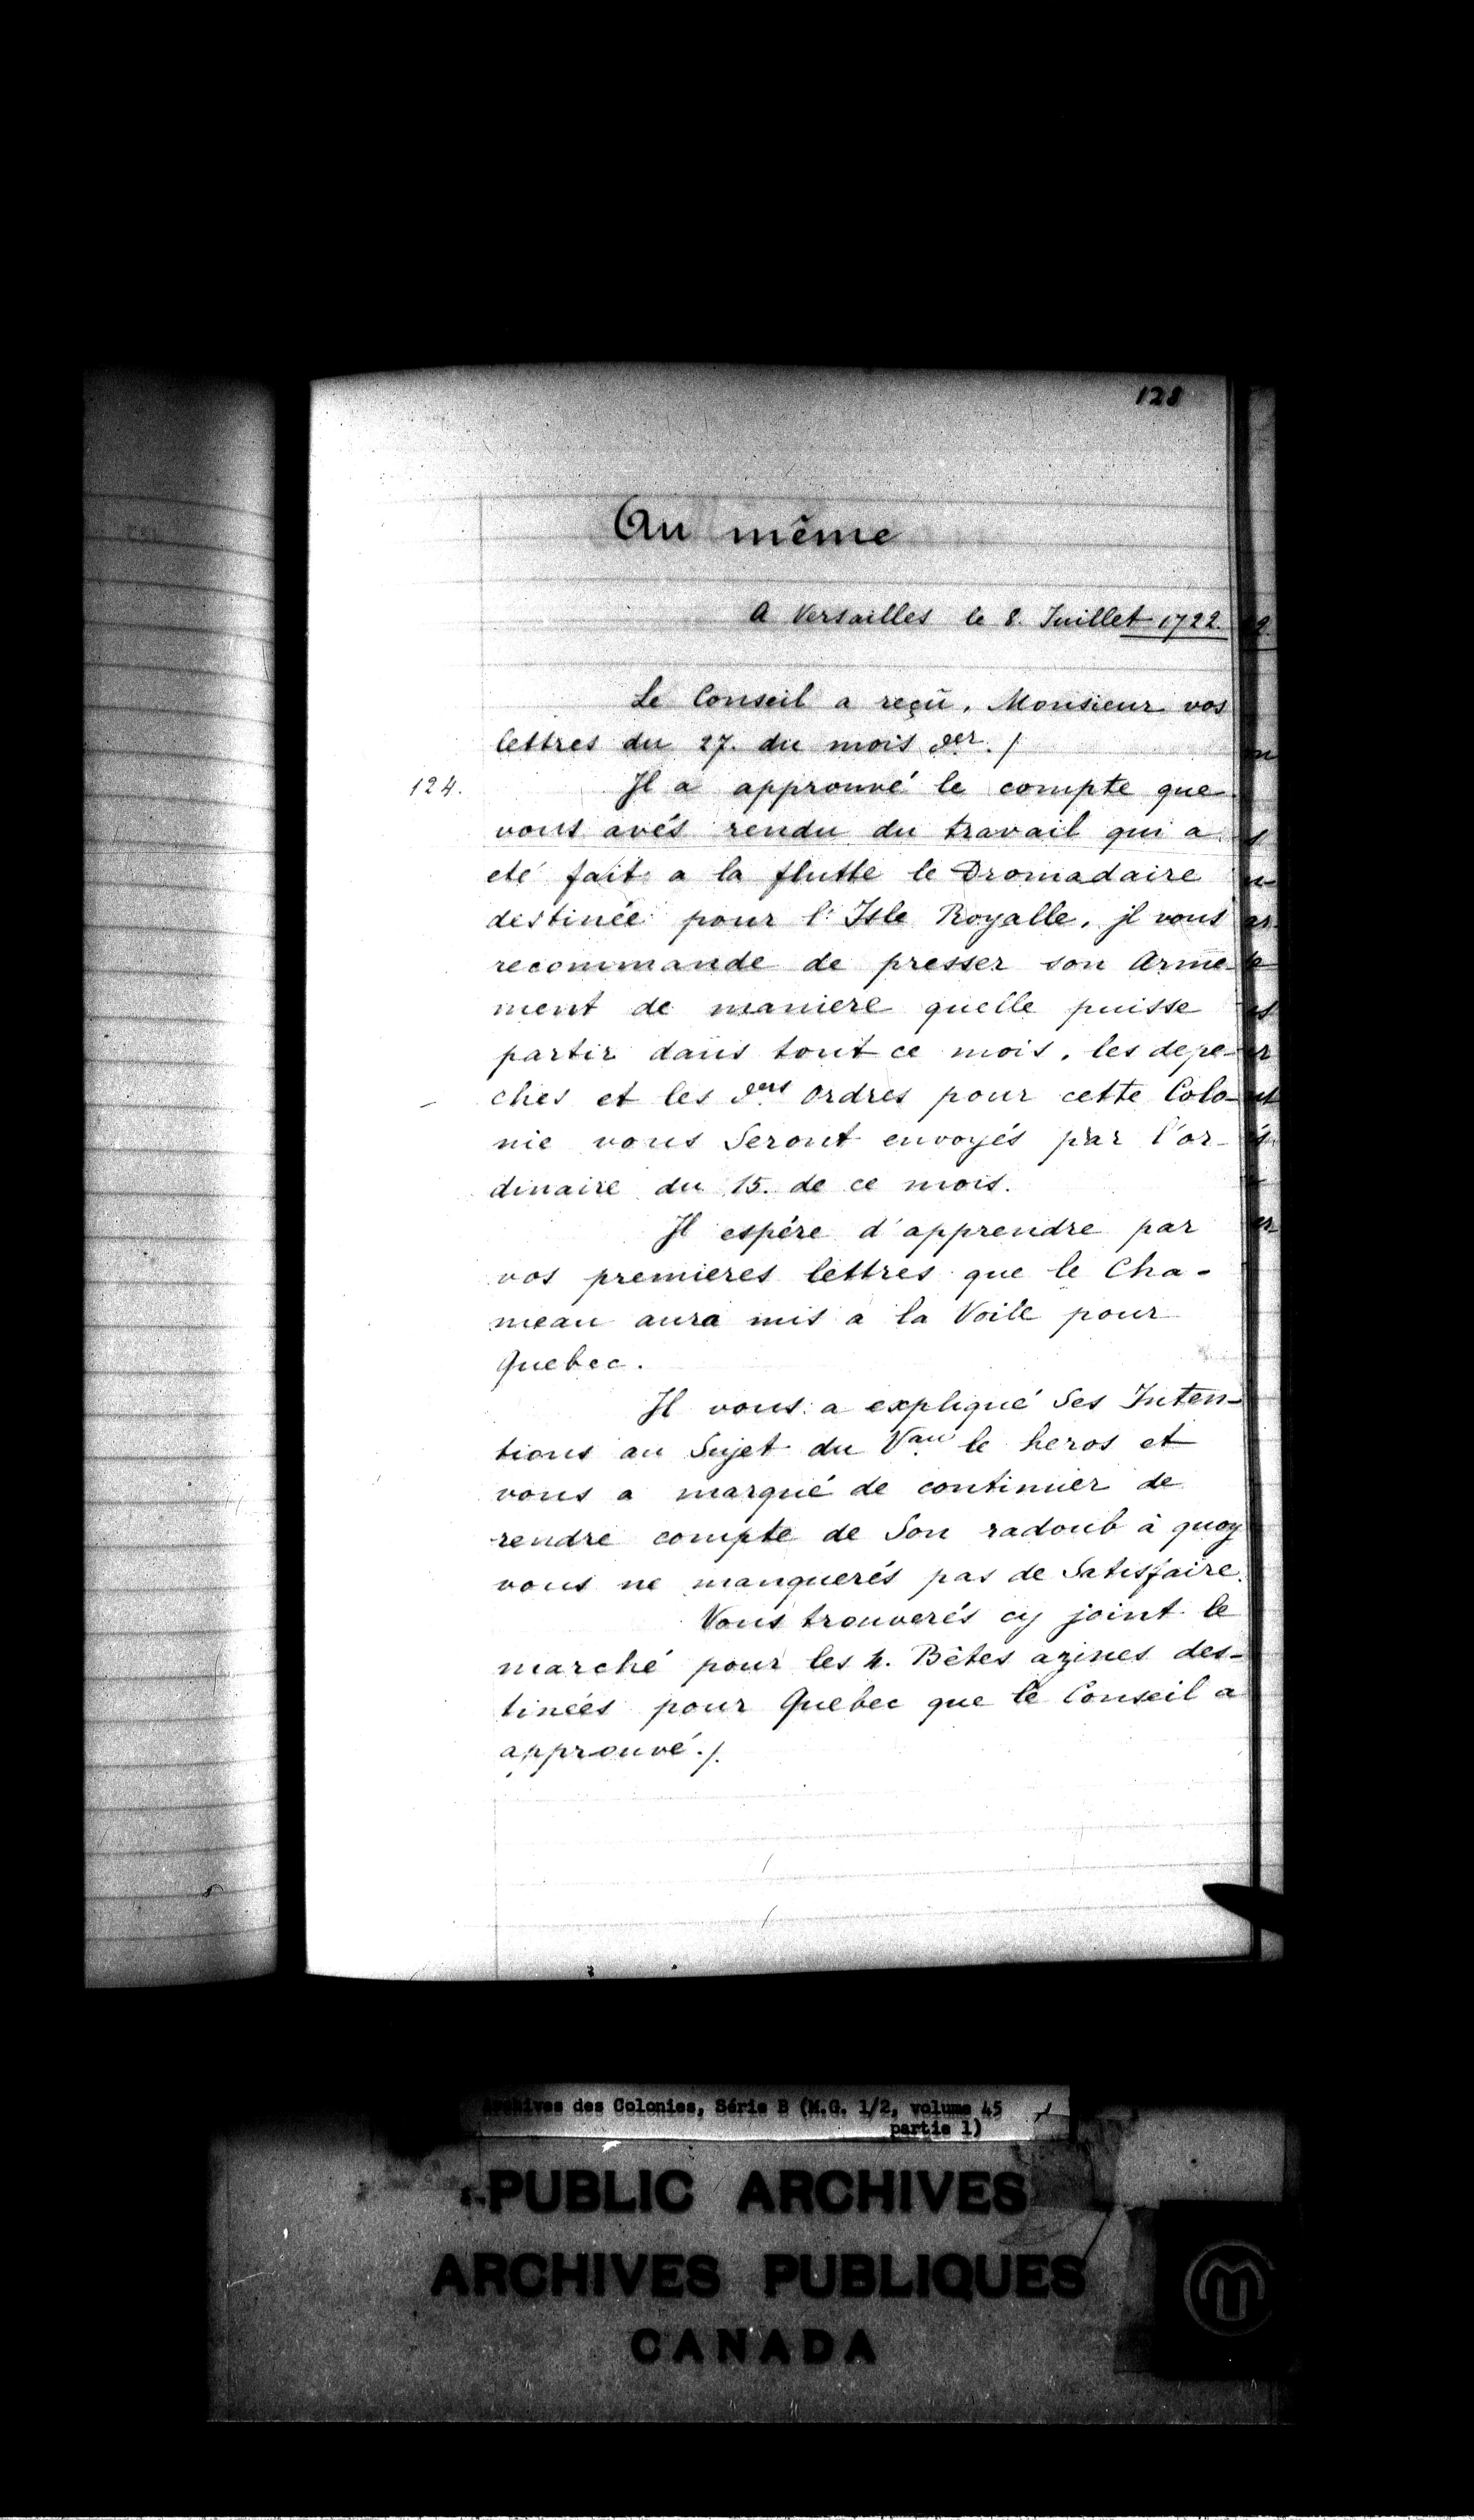 128
Au même
A Versailles le 8. Juillet 1722.
Le Conseil a reçû, Monsieur vos
lettres du 27. du mois der. /
124.
Il a approuvé le compte que
vous avés rendu du travail qui a
eté fait a la flutte le Dromadaire
destinée pour l'Isle Royalle, jl vous
recommande de presser son Arme-
ment de maniere quelle puisse
partir dans tout ce mois, les depe-
ches et les ders Ordres pour cette Colo-
nie vous Seront envoyés par l'or-
dinaire du 15. de ce mois.
Il espére d'apprendre par
vos premieres lettres que le Cha-
meau aura mis a la Voile pour
Quebec.
Il vous a expliqué Ses Inten-
tions au Sujet du Vau le heros et
vous a marqué de continuer de
rendre compte de Son radoub à quoy
vous ne manquerés pas de Satisfaire.
Vous trouverés cy joint le
marché pour les 4. Bêtes azines des-
tinées pour Quebec que le Conseil a
approuvé./.
Archives des Colonies, Série B (M.G. 1/2, volume 45
partie 1)
PUBLIC ARCHIVES
ARCHIVES PUBLIQUES
CANADA